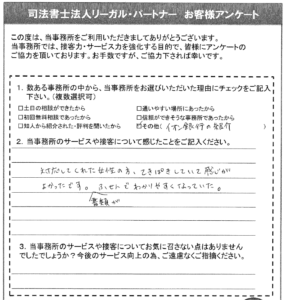 司法書士法人リーガル・パートナー お客様アンケート
この度は、当事務所をご利用いただきましてありがとうございます。
当事務所では、接客力・サービス力を強化する目的で、皆様にアンケートの
ご協力を頂いております。お手数ですが、ご協力下されば幸いです。
1. 数ある事務所の中から、当事務所をお選びいただいた理由にチェックをご記入
下さい。(複数選択可)
□土日の相談ができたから □通いやすい場所にあったから
□初回無料相談であったから □信頼ができそうな事務所であったから
□知人から紹介された・評判を聞いたから ☑その他( イオン銀行の紹介 )
2. 当事務所のサービスや接客について感じたことをご記入ください。
対応してくれた女性の方、てきぱきしていて感じが
よかったです。ふせんでわかりやすくなっていた。
書類が
3. 当事務所のサービスや接客についてお気に召さない点はありません
でしたでしょうか？今後のサービス向上の為、ご遠慮なくご指摘ください。